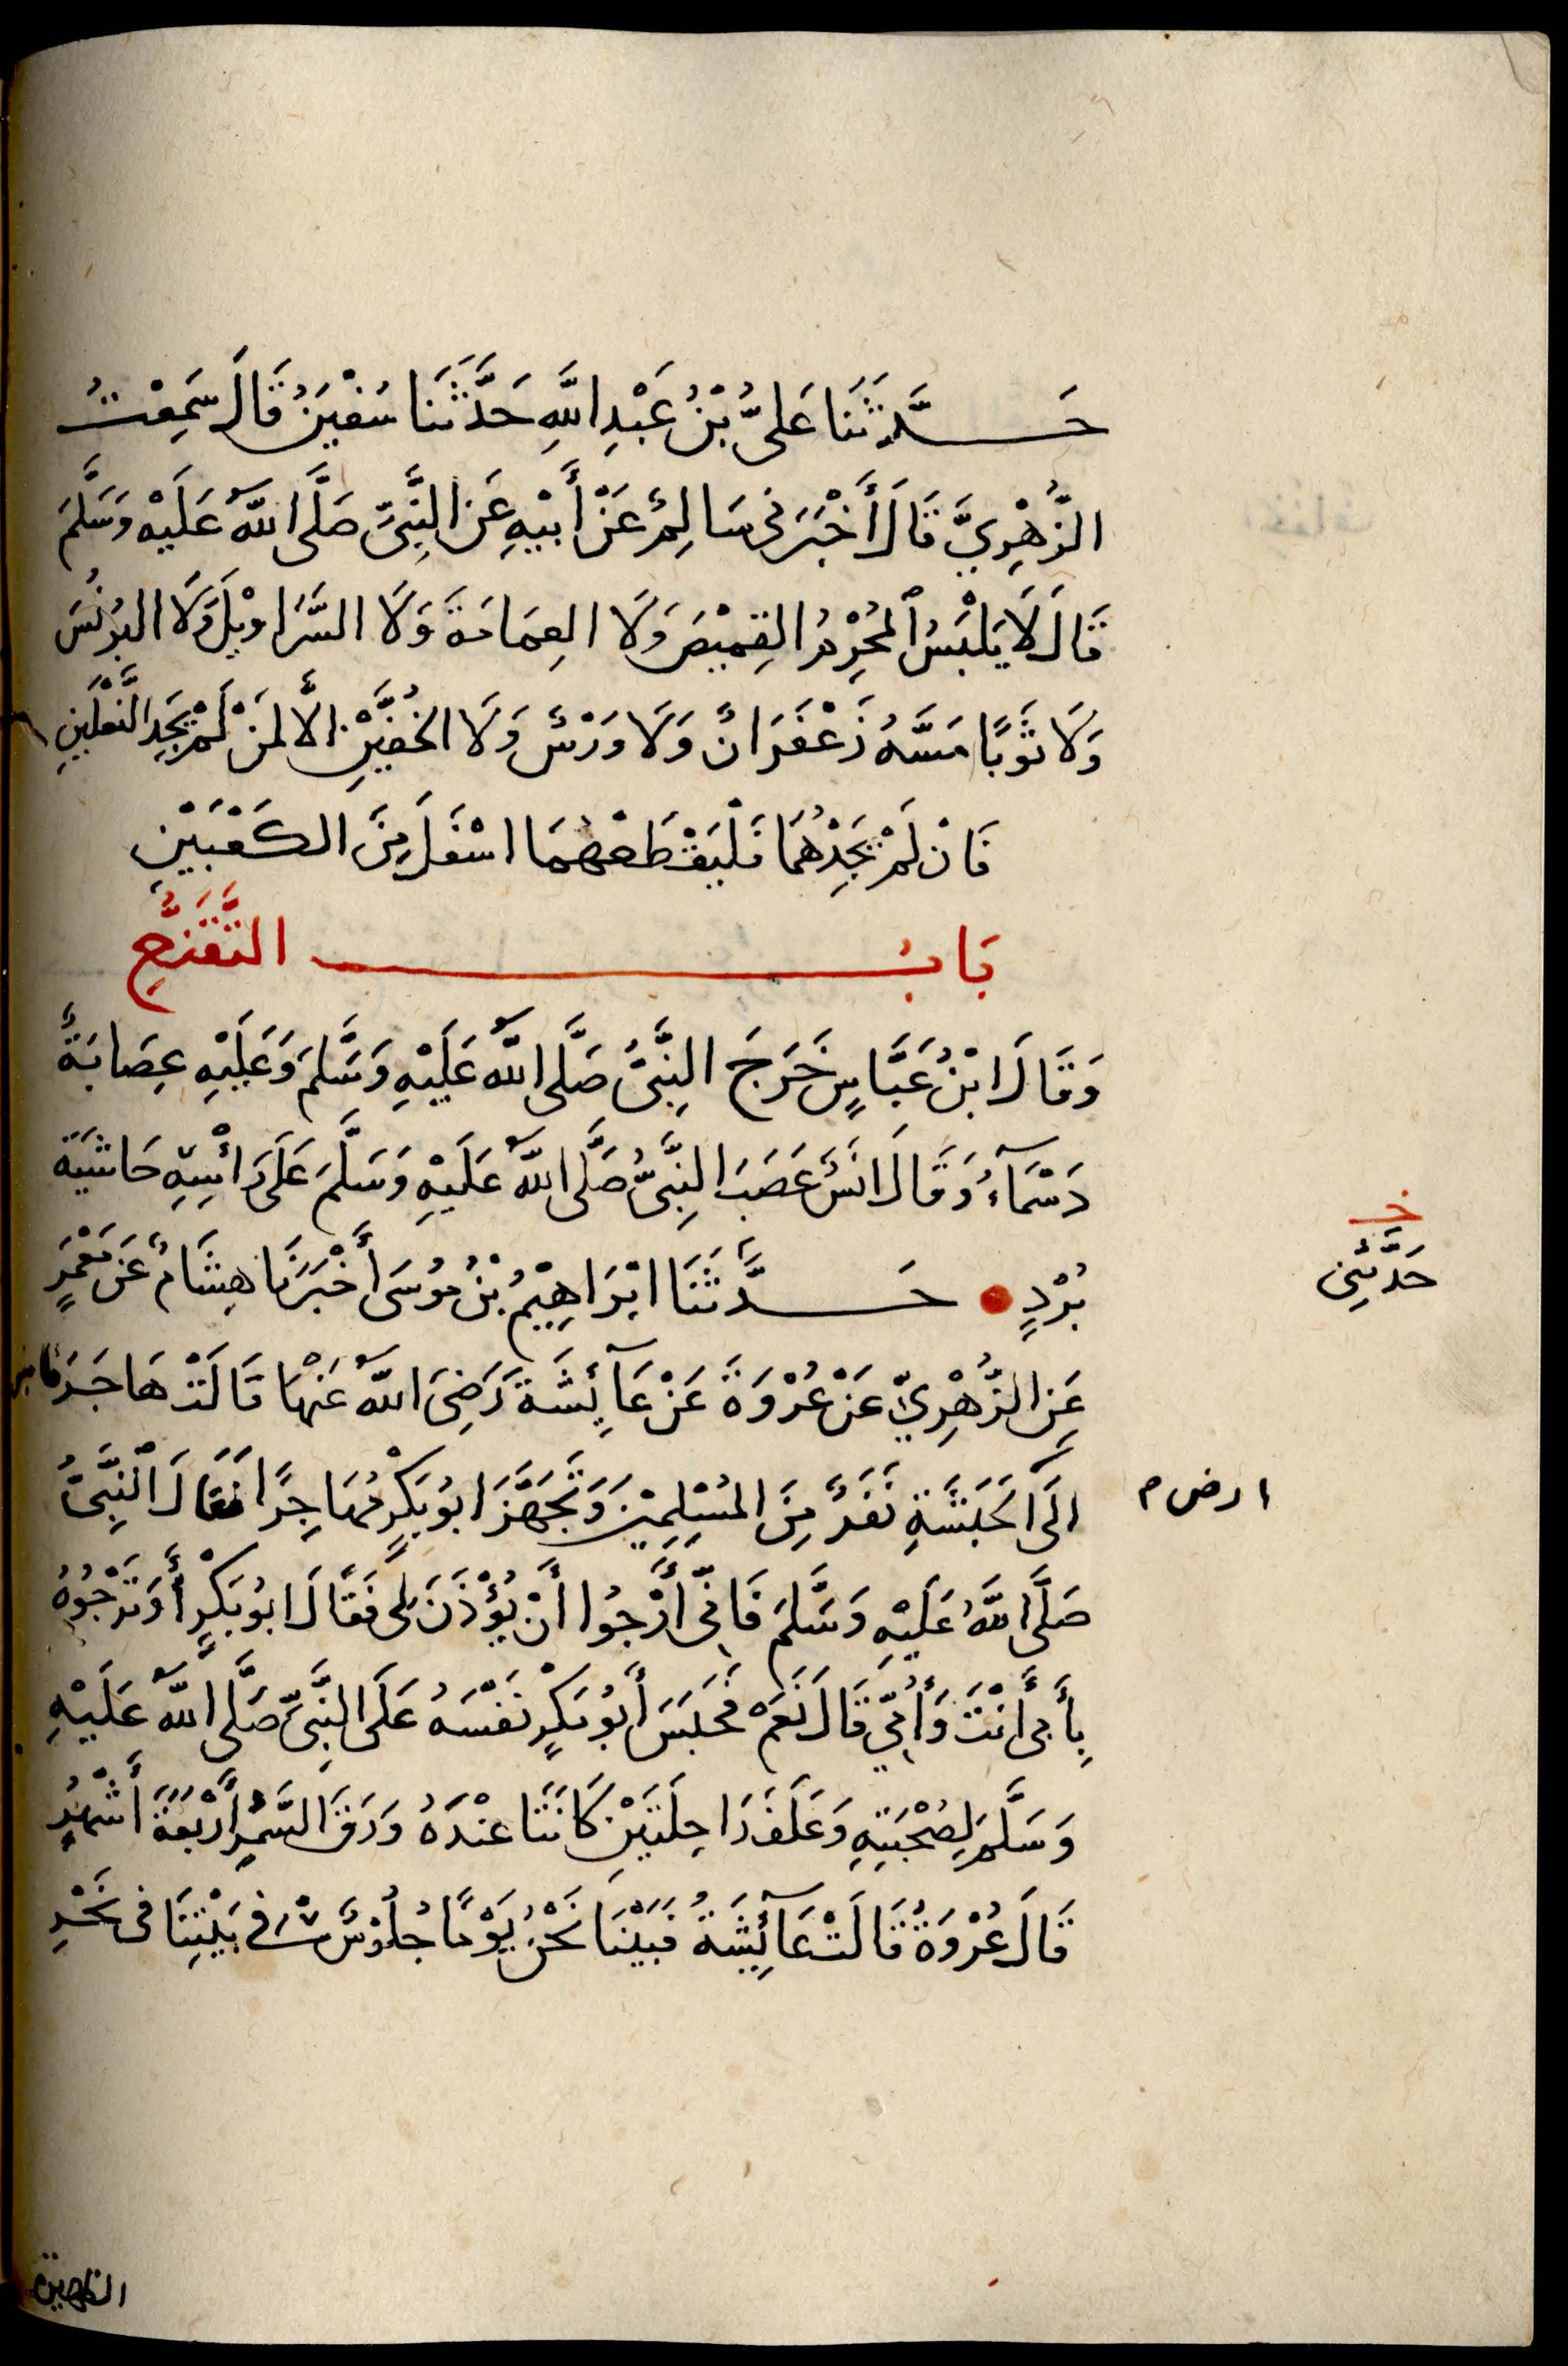 حَدَّثَنَا عَلِىُّ بْنُ عَبْدِ اللَّهِ حَدَّثَنَا سُفْيٰنُ قَالَ سَمِعْتُ
الزُّهْرِيَّ قَالَ أَخْبَرَنِى سَالِمٌ عَنْ أَبِيْهِ عَنِ النَّبِىِّ صَلَّى اللَّهُ عَلَيْهِ وَسَلَّمَ
قَالَ لَا يَلْبَسُ الْمُحْرِمُ القَمِيْصَ وَلَا العِمَامَةَ وَلَا السَّرَاوِيْلَ وَلَا البُرْنُسَ
وَلَا ثَوْبًا مَسَّهُ زَعْفَرَانٌ وَلَا وَرْسٌ وَلَا الخُفَّيْنِ الَّا لِمَنْ لَمْ يَجِدِ النَّعْلَيْنِ
فَانْ لَمْ يَجِدْهُمَا فَلْيَقْطَعْهُمَا اسْفَلَ مِنَ الكَعْبَيْنِ
بَابُ التَّقَنُّعِ
وَقَالَ ابْنُ عَبَّاسٍ خَرَجَ النَّبِىُّ صَلَّى اللَّهُ عَلَيْهِ وَسَلَّمَ وَعَلَيْهِ عِصَابَةٌ
دَسْمَآءُ وَقَالَ انَسٌ عَصَبَ النَّبِىُّ صَلَّى اللَّهُ عَلَيْهِ وَسَلَّمَ عَلَى رَاْسِهِ حَاشِيَةَ
بُرْدٍ حَدَّثَنَا ابْرَاهِيْمُ بْنُ مُوسَى أَخْبَرَنَا هِشَامٌ عَنْ مَعْمَرٍ
خ
حَدَّثَنِى
عَنِ الزُّهْرِيِّ عَنْ عُرْوَةَ عَنْ عَآئِشَةَ رَضِىَ اللَّهُ عَنْهَا قَالَتْ هَاجَرَ
الَى الحَبَشَةِ نَفَرٌ مِنَ المُسْلِمِيْنَ وَتَجَهَّزَ ابُو بَكْرٍ مُهَاجِرًا فَقَالَ النَّبِىُّ
ارض م
صَلَّى اللَّهُ عَلَيْهِ وَسَلَّمَ فَانِّى أَرْجُوا أَنْ يُؤْذَنَ لِى فَقَالَ ابُو بَكْرٍ أَوَ تَرْجُوْهُ
بِأَبِى أَنْتَ وَأُمِّي قَالَ نَعَمْ فَحَبَسَ أَبُو بَكْرٍ نَفْسَهُ عَلَى النَّبِىِّ صَلَّى اللَّهُ عَلَيْهِ
وَسَلَّمَ لِصُحْبَتِهِ وَعَلَفَ رَاحِلَتَيْنِ كَانَتَا عِنْدَهُ وَرَقَ السَّمُرِ أَرْبَعَةَ أَشْهُرٍ
قَالَ عُرْوَةُ قَالَتْ عَآئِشَةُ فَبَيْنَا نَحْنُ يَوْمًا جُلُوْسٌ فِى بَيْتِنَا فِى نَحْرِ
الظهيرة